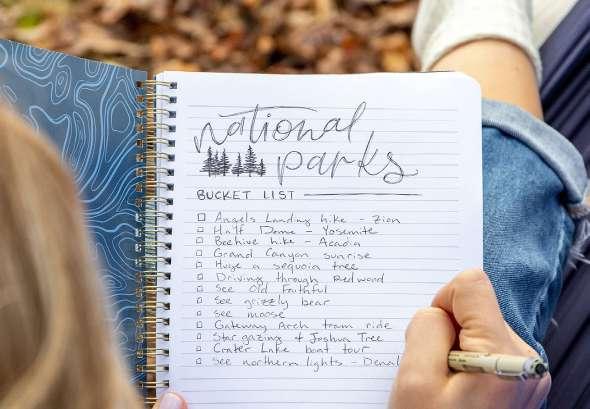 national
parks
BUCKET LIST
Angels Landing hike - Zion
Half Dome - Yosemite
Beehive hike - Acadia
Grand Canyon sunrise
Huge a sequoia tree
Driving through Redwood
See Old Faithful
See grizzly bear
See moose
Gateway Arch tram ride
Star gazing @ Joshua Tree
Crater Lake boat tour
See northern lights - Denal